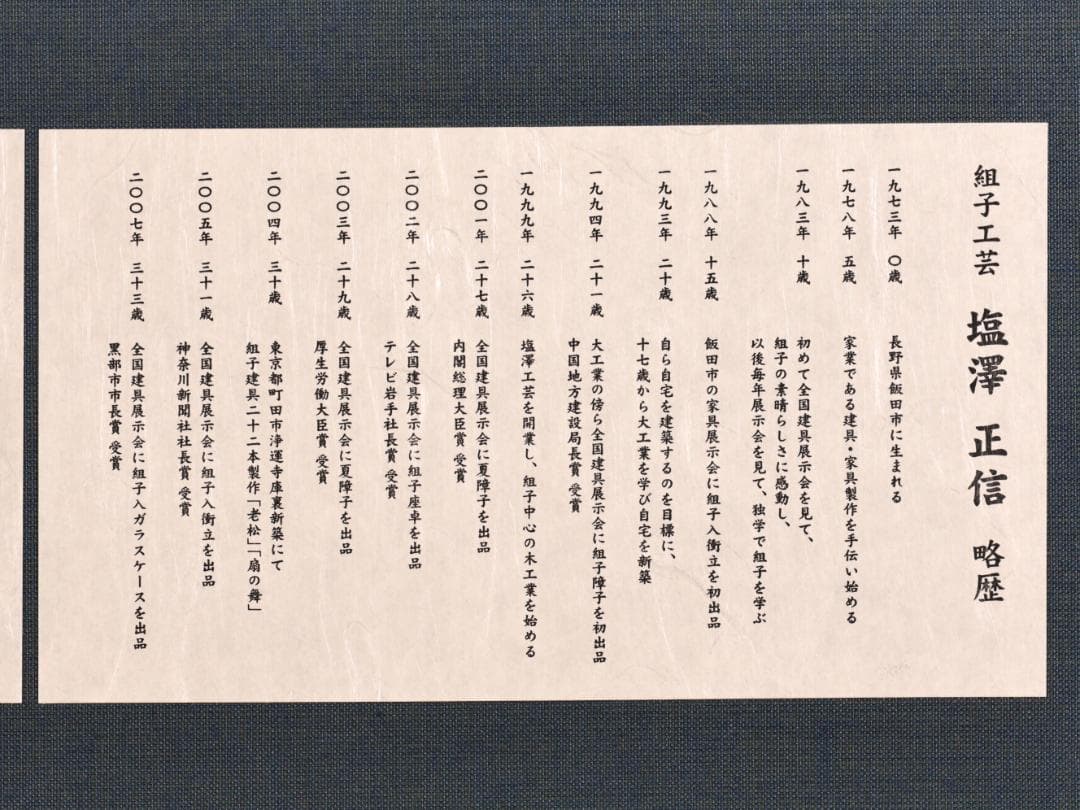 組子工芸 塩澤 正信 略歴
一九七三年 〇歳 長野県飯田市に生まれる
一九七八年 五歳 家業である建具・家具製作を手伝い始める
一九八三年 十歳 初めて全国建具展示会を見て、
組子の素晴らしさに感動し、
以後毎年展示会を見て、独学で組子を学ぶ
一九八八年 十五歳 飯田市の家具展示会に組子入衝立を初出品
一九九三年 二十歳 自ら自宅を建築するのを目標に、
十七歳から大工業を学び自宅を新築
一九九四年 二十一歳 大工業の傍ら全国建具展示会に組子障子を初出品
中国地方建設局長賞 受賞
一九九九年 二十六歳 塩澤工芸を開業し、組子中心の木工業を始める
二〇〇一年 二十七歳 全国建具展示会に夏障子を出品
内閣総理大臣賞 受賞
二〇〇二年 二十八歳 全国建具展示会に組子座卓を出品
テレビ岩手社長賞 受賞
二〇〇三年 二十九歳 全国建具展示会に夏障子を出品
厚生労働大臣賞 受賞
二〇〇四年 三十歳 東京都町田市浄運寺庫裏新築にて
組子建具二十二本製作「老松」「扇の舞」
二〇〇五年 三十一歳 全国建具展示会に組子入衝立を出品
神奈川新聞社社長賞 受賞
二〇〇七年 三十三歳 全国建具展示会に組子入ガラスケースを出品
黒部市市長賞 受賞